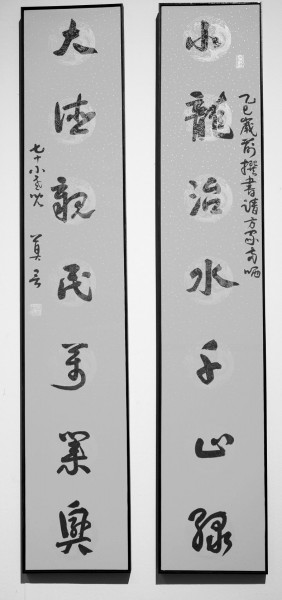 小龍治水千山綠
乙巳歲前撰書請方家哂
大德親民萬業興
七十小
莫言